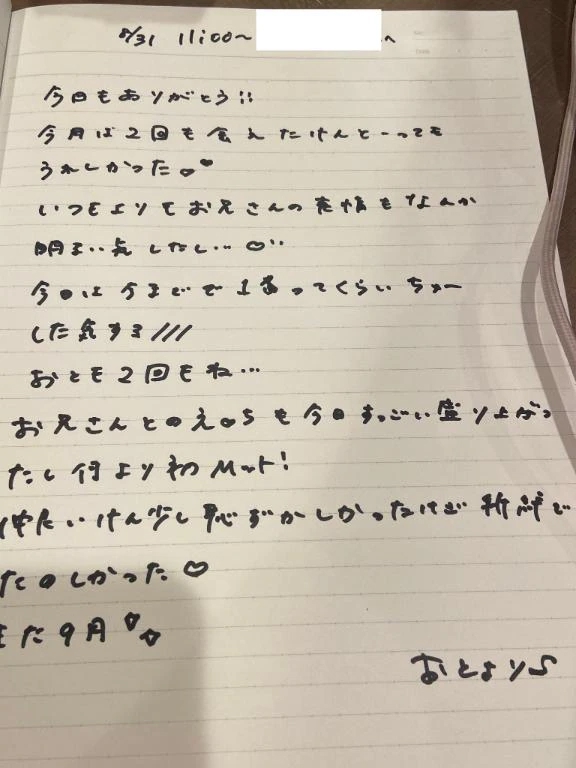 8/31 11:00〜 へ
今日もありがとう!!
今月は2回も会えたけんとーっても
うれしかった♡♥
いつもよりもお兄さんの表情もなんか
明るい気したし…♡¨
今日は今までで1番ってくらいちゅー
した気する///
おとも2回もね…
お兄さんとのえ♡ちも今日すっごい盛り上がっ
たし何より初Mット!
仲たいけん少し恥ずかしかったけど新鮮で
たのしかった♡
また9月
おとより